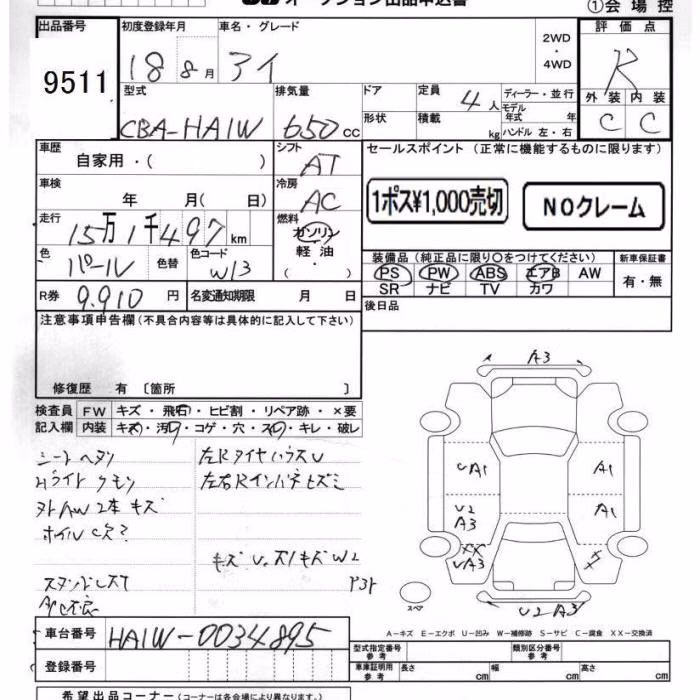 オークション出品申込書
①会場控
出品番号
9511
初度登録年月
18 8月
車名・グレード
アイ
2WD
・
4WD
評価点
R
外装 内装
C C
型式
CBA-HA1W
排気量
650cc
ドア
形状
定員
4人
積載
kg
ディーラー・並行
モデル
年式 年
ハンドル 左・右
車歴
自家用・( )
シフト
AT
セールスポイント (正常に機能するものに限ります)
1ポス¥1,000売切
NOクレーム
車検
年 月( 日)
冷房
AC
走行
15万1千497km
燃料
ガソリン
軽油
( ・ )
色
パール
色替
色コード
W13
装備品(純正品に限り〇をつけてください)
PS PW ABS エアB AW
SR ナビ TV カワ
新車保証書
有・無
R券 9.910円
名変通知期限 月 日
後日品
注意事項申告欄(不具合内容等は具体的に記入して下さい)
修復歴 有〔箇所 〕
検査員
記入欄
FW キズ・飛石・ヒビ割・リペア跡・×要
内装 キズ・汚・コゲ・穴・スレ・キレ・破レ
シートヘタリ
Hライトクモリ
外AW2本キズ
左Rタイヤハウス U
左右Rインパネヒズミ
キズ U.ズ1キズW2
A3
UA1
A1
U2
A3
A1
XX
UA3
U2 A3
スペア
A-キズ E-エクボ U-凹み W-補修跡 S-サビ C-腐食 XX-交換済
車台番号
HA1W-0034895
登録番号
型式指定番号
参考
類別区分番号
参考
車庫証明用
参考
長さ cm
幅 cm
高さ cm
希望出品コーナー(コーナーは各会場により異なります)